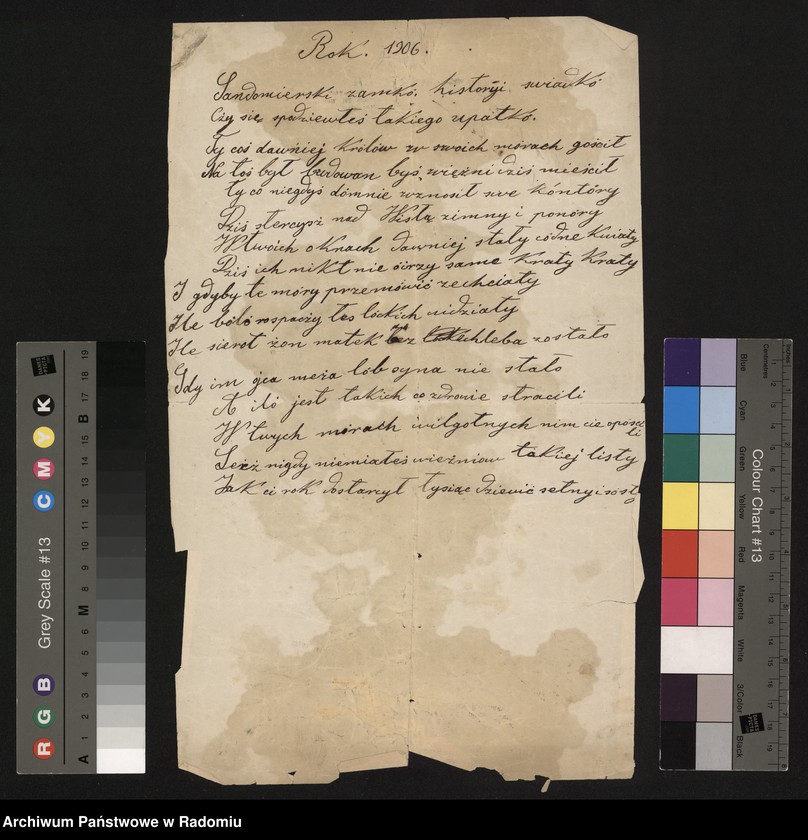 Rok. 1906.
Sandomierski zamkó. historji swiadkó
Czy się spodziewłeś takiego upatkó.
Ty coś dawniej królów w swoich mórach gościł
Na toś był budowan byś więźni dziś mieścił
ty co niegdyś dómnie wznosił swe kóntóry
Dziś stercysz nad Wisłą zimny i ponóry
W twoich oknach dawniej stały códne kwiaty
Dziś ich nikt nie óirzy same kraty kraty
I gdyby te móry przemówić zechciały
Ile bóló rospaczy łes lóckich widziały
Ile sierot żon matek bez chleba zostało
Gdy im ojca męża lób syna nie stało
A iló jest takich co zdrowie stracili
W twych mórach wilgotnych nim cie opósci
li
Lecz nigdy niemiałeś wiezniow takiej listy
Jak ci rok dostarcył tysiąc dziewić setny i szósty
Archiwum Państwowe w Radomiu
Grey Scale #13
R G B
C M Y K
A 1 2 3 4 5 6 M 8 9 10 11 12 13 14 15 B 17 18 19
Colour Chart #13
Blue
Cyan
Green
Yellow
Red
Magenta
White
3/Color
Black
Centimetres
Inches